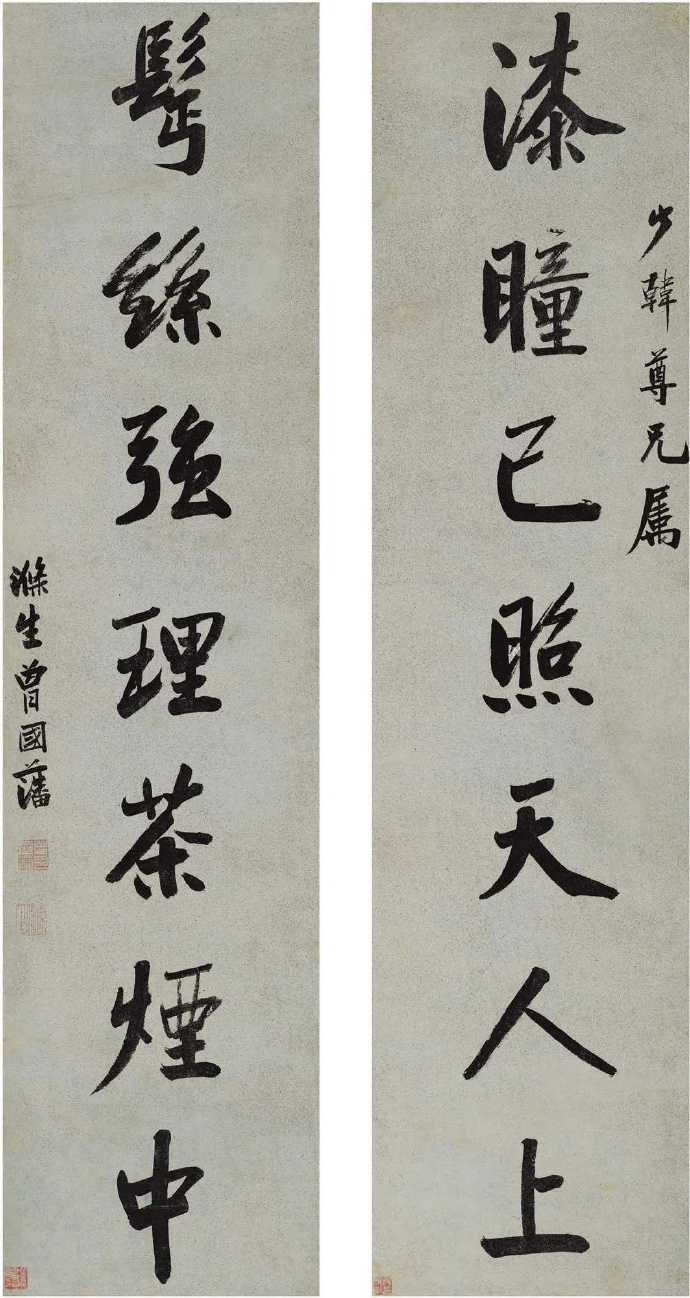 少韓尊兄属
漆瞳已照天人上
鬢絲強理茶煙中
滌生曾國藩